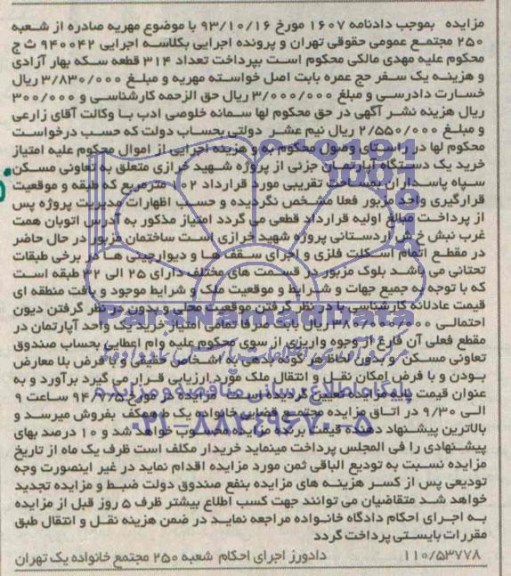 مزایده بموجب دادنامه ۱۶۰۷ مورخ ۹۳/۱۰/۱۶ با موضوع مهریه صادره از شعبه
۲۵۰ مجتمع عمومی حقوقی تهران و پرونده اجرایی بکلاسه اجرایی ۹۴۰۰۴۲ ث ج
محکوم علیه مهدی مالکی محکوم است بپرداخت تعداد ۳۱۴ قطعه سکه بهار آزادی
و هزینه یک سفر حج عمره بابت اصل خواسته مهریه و مبلغ ۳/۸۳۰/۰۰۰ ریال
خسارت دادرسی و مبلغ ۳/۰۰۰/۰۰۰ ریال حق الزحمه کارشناسی و ۳۰۰/۰۰۰
ریال هزینه نشر آگهی در حق محکوم لها سمانه خلوصی ادب با وکالت آقای زارعی
و مبلغ ۲/۵۵۰/۰۰۰ ریال نیم عشر دولتی بحساب دولت که حسب درخواست
محکوم لها در راستای وصول محکوم به و هزینه اجرایی از اموال محکوم علیه امتیاز
خرید یک دستگاه آپارتمان جزئی از پروژه شهید خرازی متعلق به تعاونی مسکن
سپاه پاسداران بمساحت تقریبی مورد قرارداد ۱۰۲ مترمربع که طبقه و موقعیت
قرارگیری واحد مزبور فعلا مشخص نگردیده و حسب اظهارات مدیریت پروژه پس
از پرداخت مبالغ اولیه قرارداد قطعی می گردد امتیاز مذکور به آدرس اتوبان همت
غرب نبش خ ش اردستانی پروژه شهید خرازی است ساختمان مزبور در حال حاضر
در مقطع اتمام اسکلت فلزی و اجرای سقف ها و دیوارچینی ها در برخی طبقات
تحتانی می باشد بلوک مزبور در قسمت های مختلف دارای ۲۵ الی ۳۲ طبقه است
که با توجه به جمیع جهات و شرایط و موقعیت ملک و شرایط موجود و بافت منطقه ای
قیمت عادلانه کارشناسی با در نظر گرفتن موقعیت محلی و بدون در نظر گرفتن دیون
احتمالی ۳۸۶/۰۰۰/۰۰۰ ریال بابت صرفا تمامی امتیاز خرید یک واحد آپارتمان در
مقطع فعلی آن فارغ از وجوه واریزی از سوی محکوم علیه وام اعطایی بحساب صندوق
تعاونی مسکن و بدون لحاظ هر گونه بدهی به اشخاص حقیقی و با فرض بلا معارض
بودن و با فرض امکان نقل و انتقال ملک مورد ارزیابی قرار می گیرد برآورد و به
عنوان قیمت پایه مزایده تعیین گردیده است مزایده در مورخ ۹۴/۹/۵ ساعت ۹
الی ۹/۳۰ در اتاق مزایده مجتمع قضایی خانواده یک ط همکف بفروش میرسد و
بالاترین پیشنهاد دهنده قیمت برنده مزایده محسوب خواهد شد و ۱۰ درصد بهای
پیشنهادی را فی المجلس پرداخت مینماید خریدار مکلف است ظرف یک ماه از تاریخ
مزایده نسبت به تودیع الباقی ثمن مورد مزایده اقدام نماید در غیر اینصورت وجه
تودیعی پس از کسر هزینه های مزایده بنفع صندوق دولت ضبط و مزایده تجدید
خواهد شد متقاضیان می توانند جهت کسب اطلاع بیشتر ظرف ۵ روز قبل از مزایده
به اجرای احکام دادگاه خانواده مراجعه نمایند در ضمن هزینه نقل و انتقال طبق
مقررات بایستی پرداخت گردد
۱۱۰/۵۳۷۷۸ دادورز اجرای احکام شعبه ۲۵۰ مجتمع خانواده یک تهران
ParsNamadData
۰۲۱-۸۸۳۴۹۶۷۰-۵